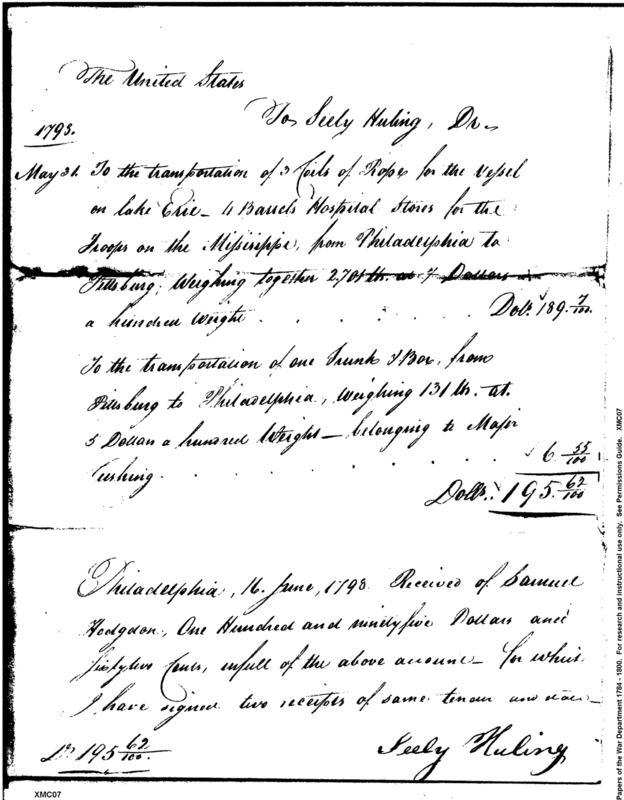 The United States
To Seely Huling, Dr.
1793.
May 31. To the transportation of 3 Coils of Rope for the Vessel
on lake Erie _ 4 Barrels Hospital Stores for the
Troops on the Missisippi, from Philadelphia to
Pittsburg; Weighing together 2701 lb. at 7 Dollars
a hundred Weight . . . . . Doll.s 189. 7/100.
To the transportation of one Trunk & Box, from
Pittsburg to Philadelphia, weighing 131 lb. at.
5 Dollars a hundred Weight _ belonging to Major
Cushing . . . . . . . 6. 55/100
Doll.s 195. 62/100
Philadelphia, 16. June, 1793. Received of Samuel
Hodgdon, One Hundred and ninetyfive Dollars and
sixtytwo Cents, in full of the above account _ for which
I have signed two receipts of same tenor and date _
Drs 195 62/100.
Seely Huling
XMC07
Papers of the War Department 1784 - 1800. For research and instructional use only. See Permissions Guide. XMC07